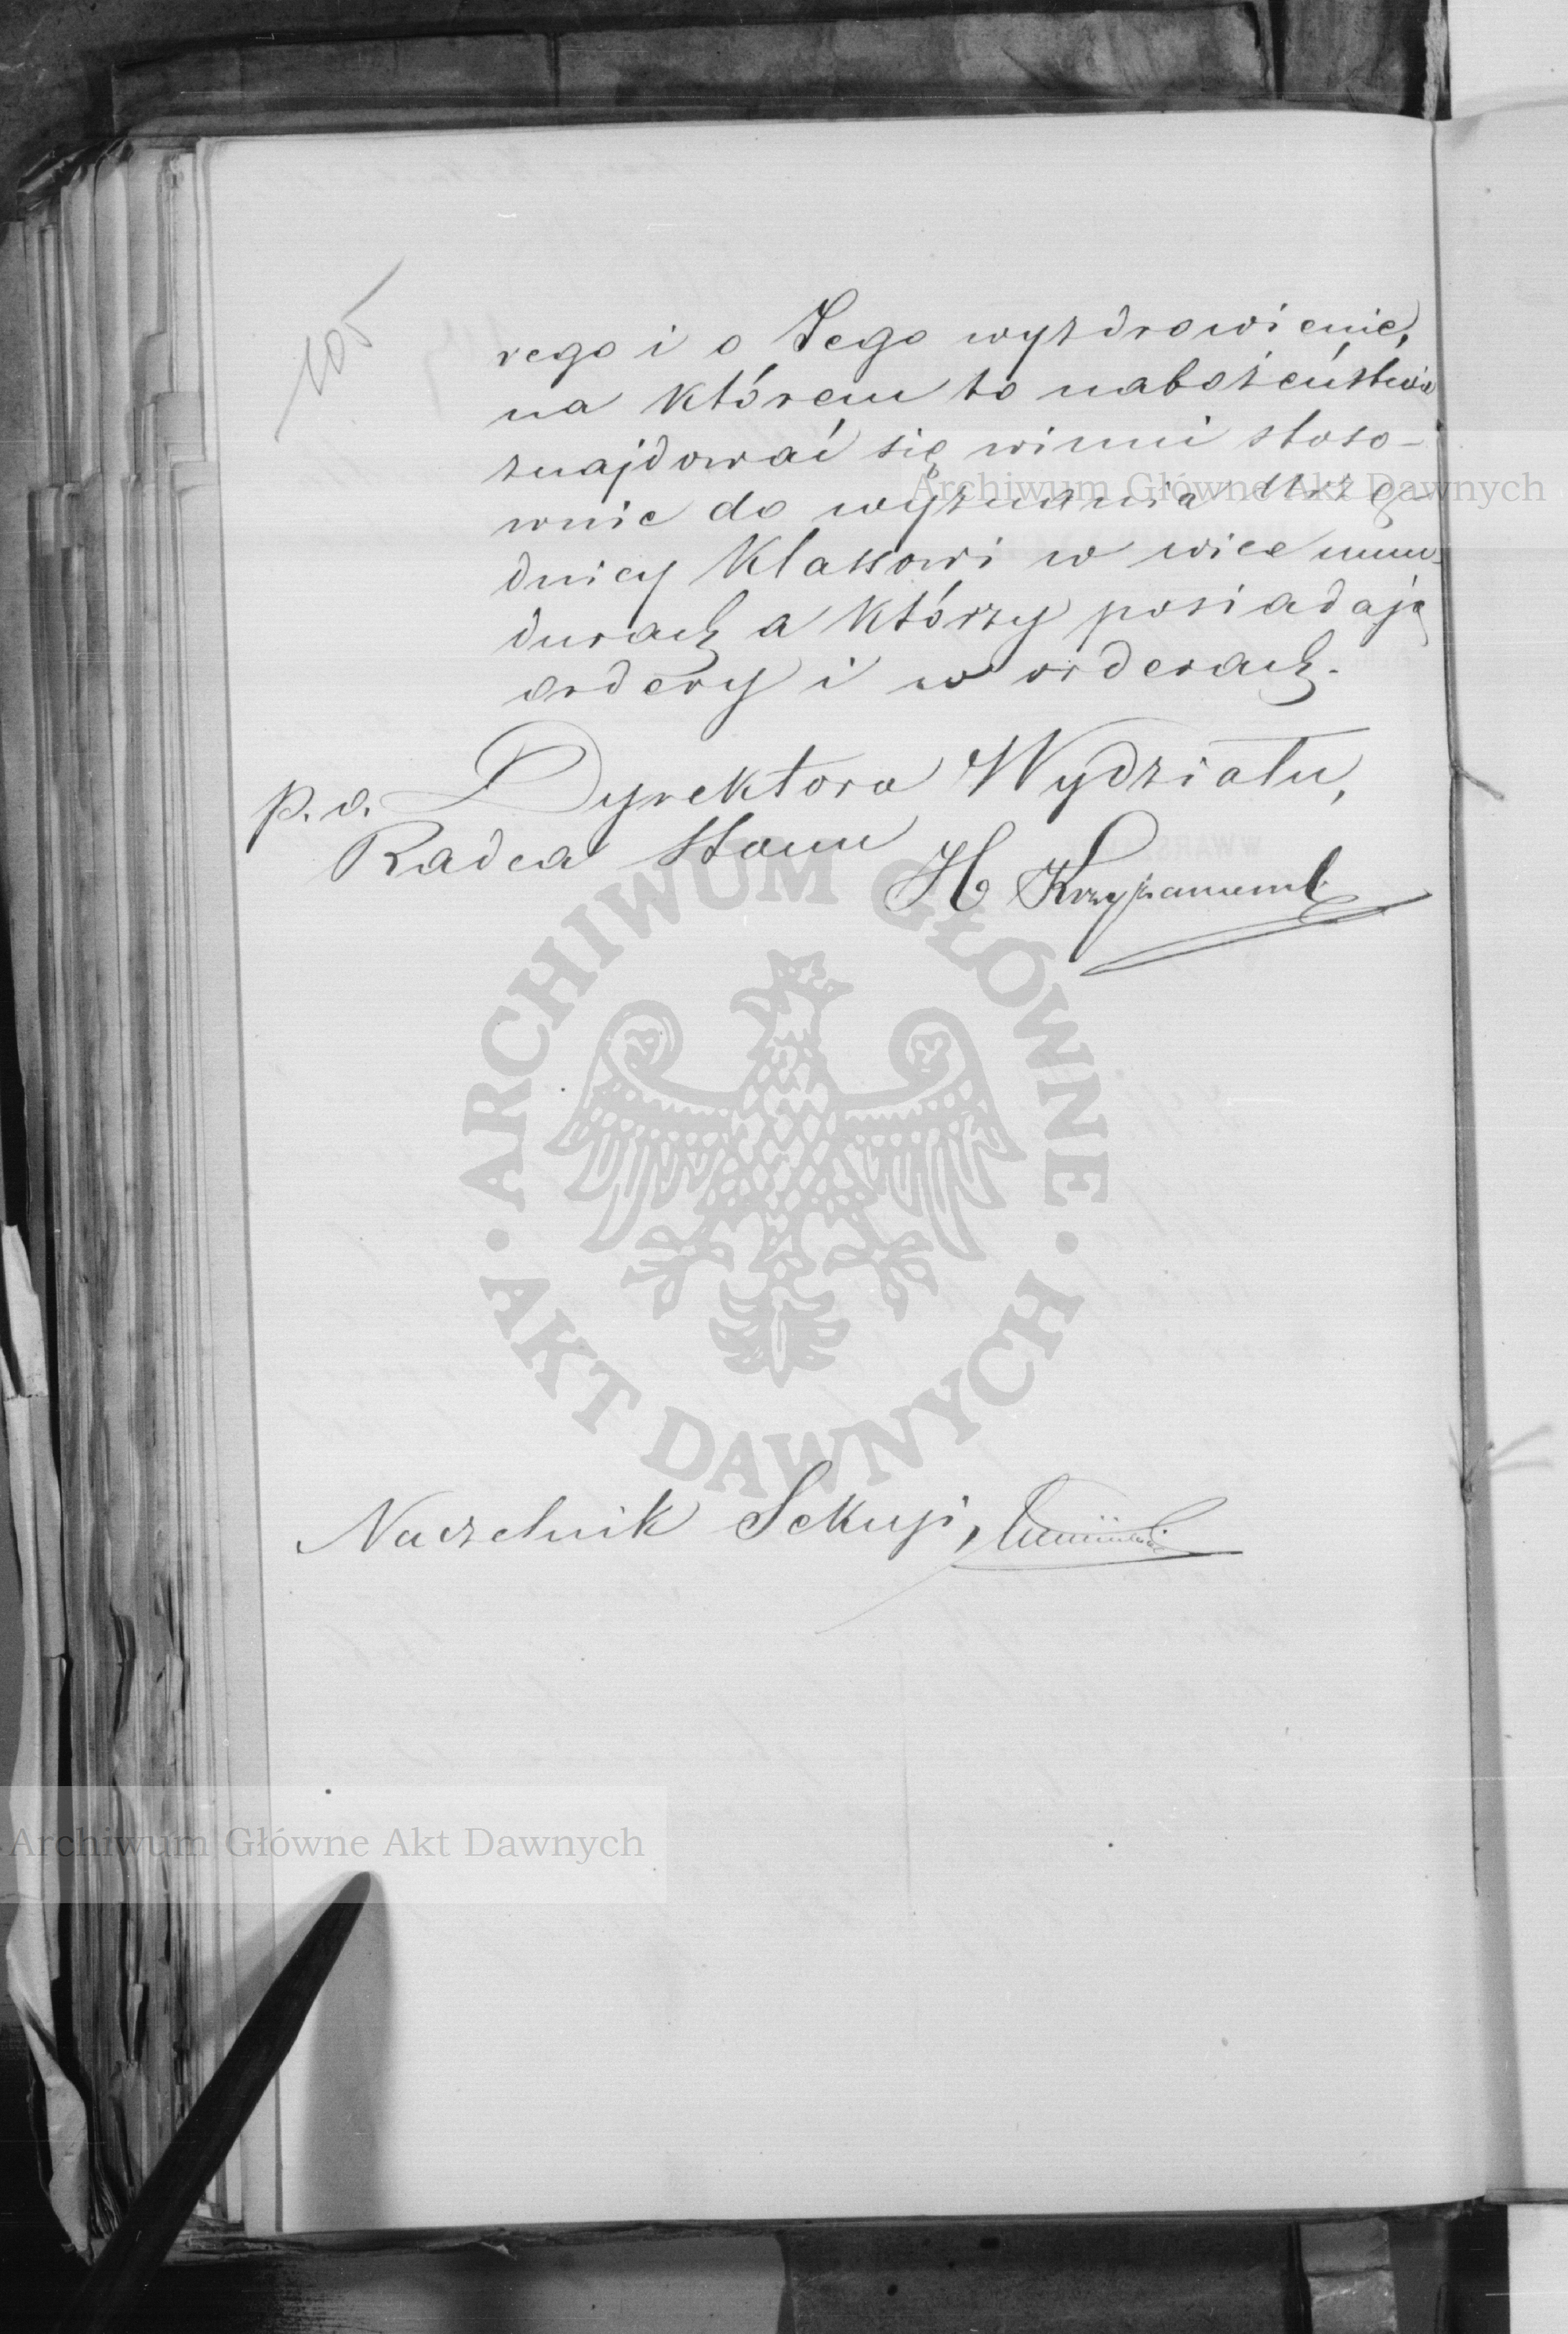 105
rego i o Jego wyzdrowienie,
na którem to nabożeństwie
znajdować się winni stoso-
wnie do wyznania Urzę-
dnicy Klassowi w wice mun-
durach a którzy posiadają
ordery i w orderach.
p. o. Dyrektora Wydziału,
Radca Stanu
H
Naczelnik Sekcyi,
ARCHIWUM GŁÓWNE AKT DAWNYCH
Archiwum Główne Akt Dawnych
Archiwum Główne Akt Dawnych